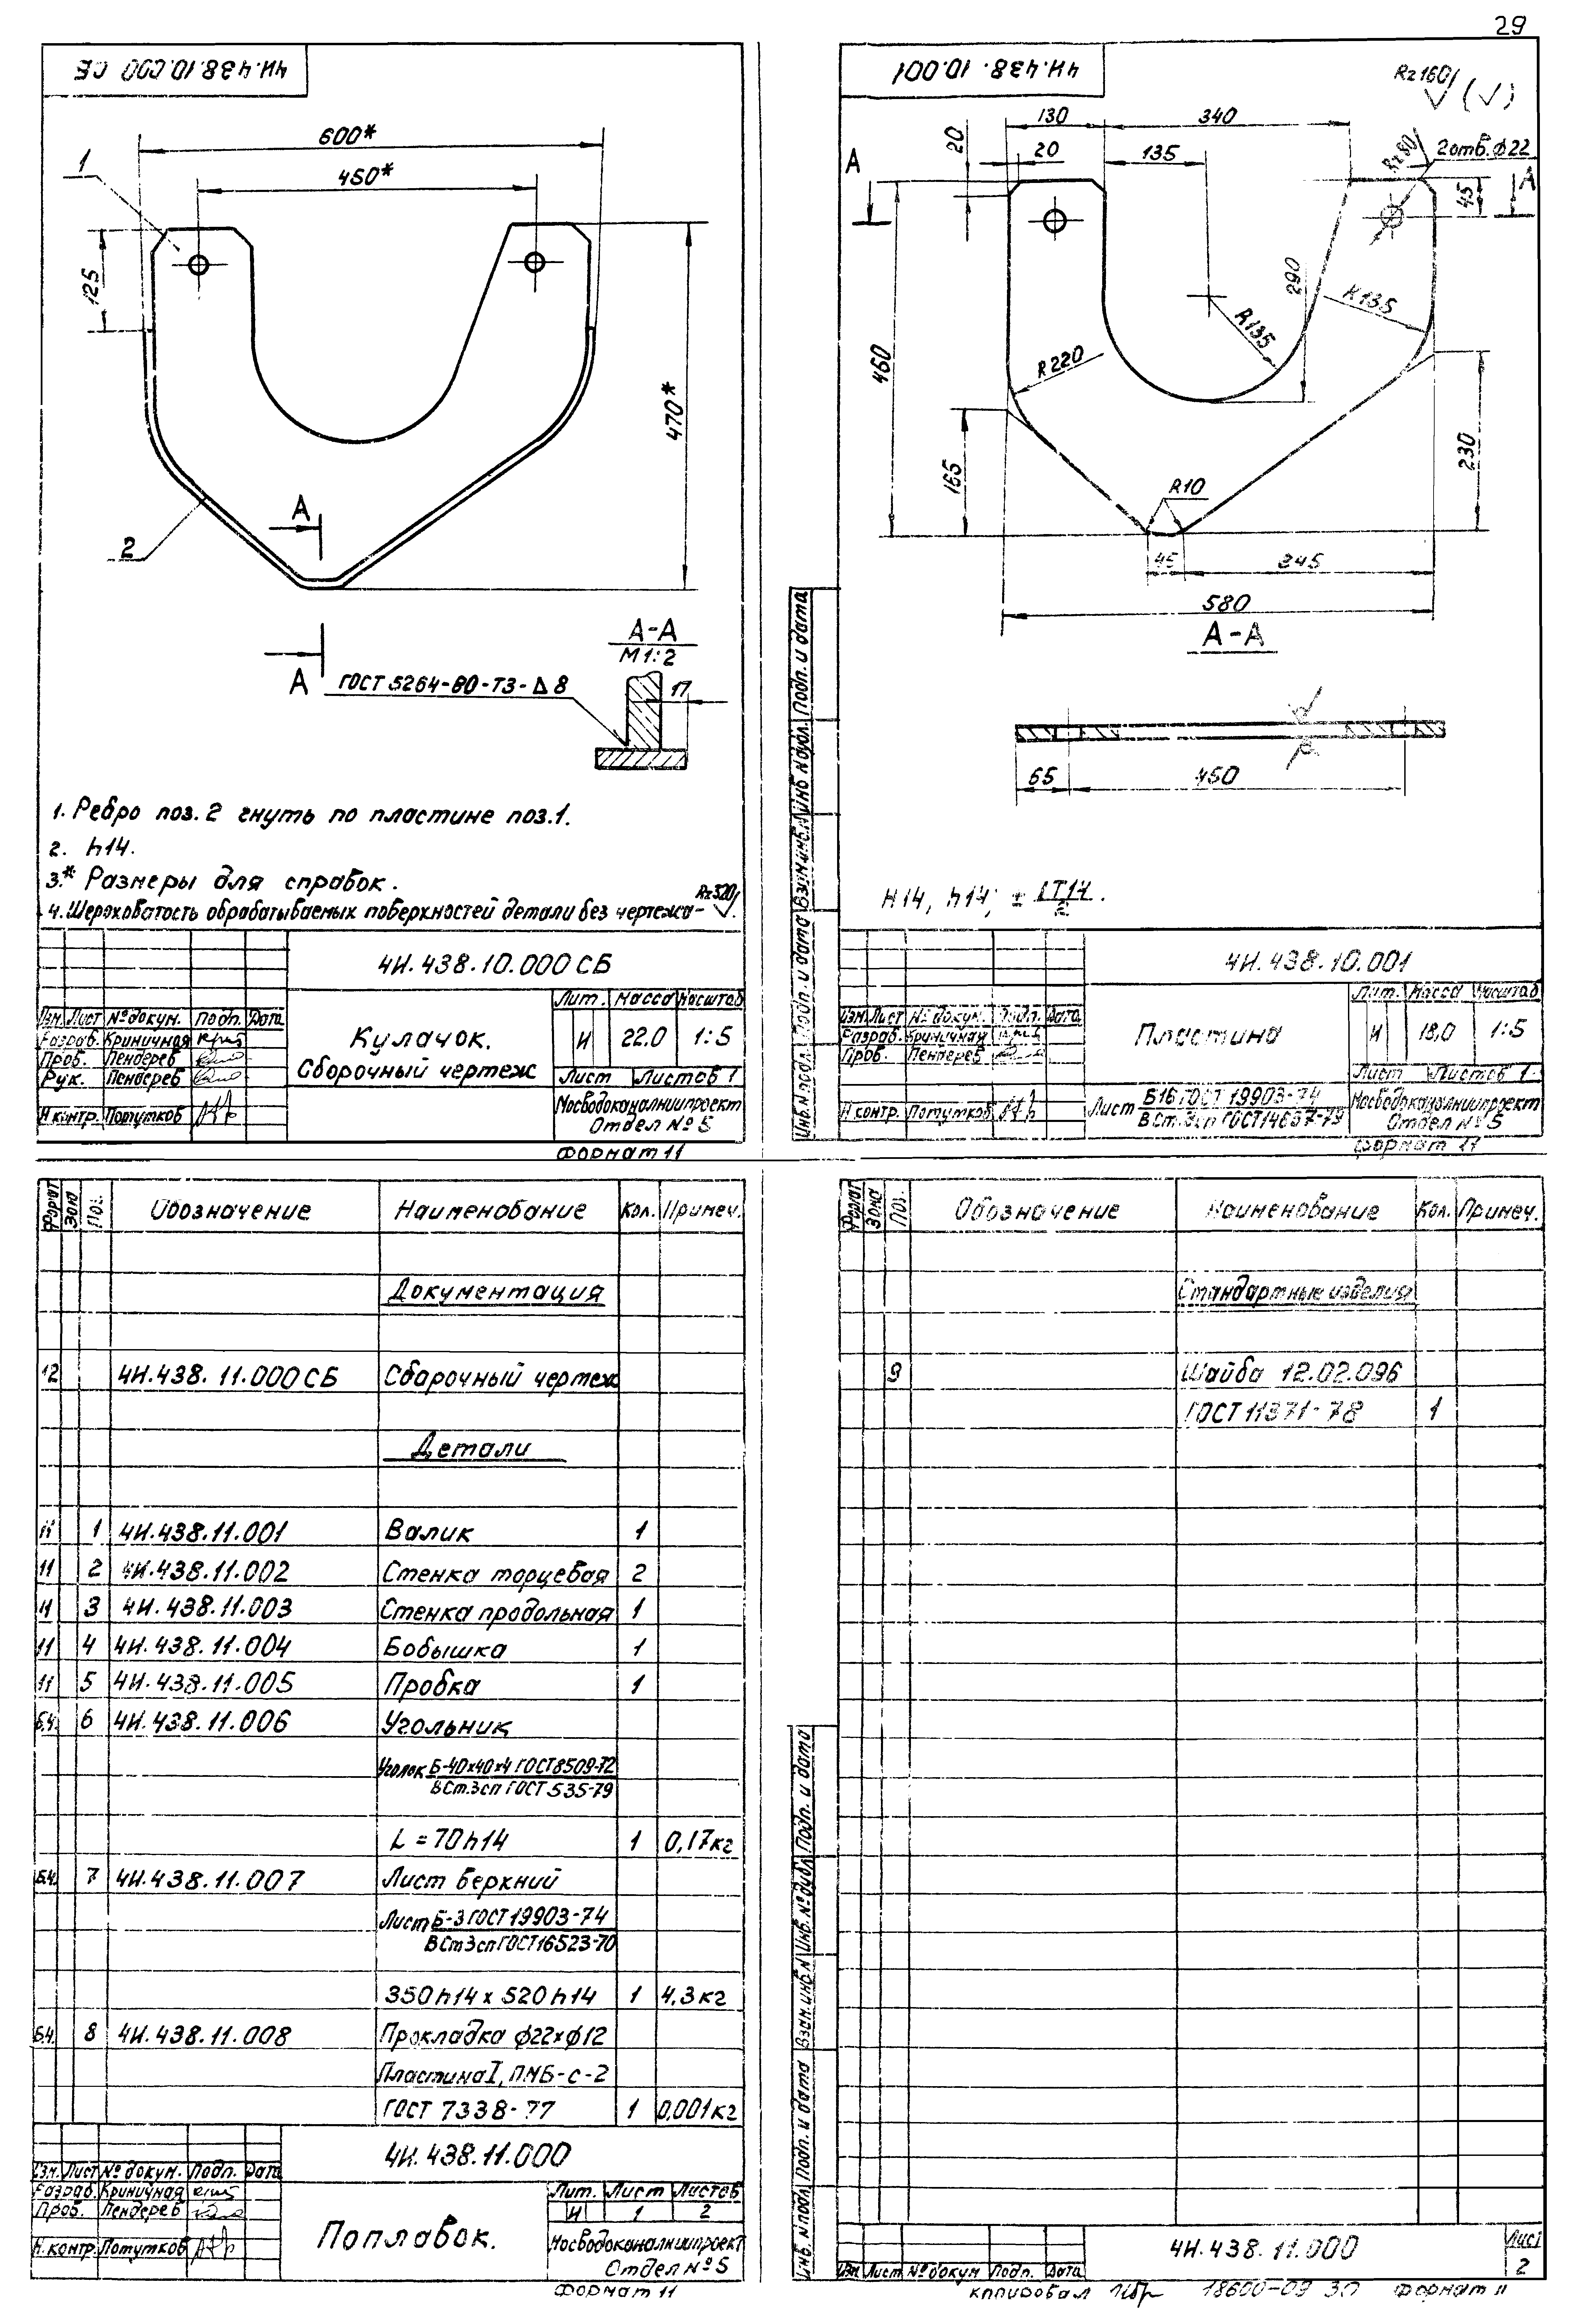 29
4И.438.10.000 СБ
600*
450*
1
125
470*
2
А
А
А-А
М1:2
ГОСТ 5264-80-Т3-Δ8
17
1. Ребро поз.2 гнуть по пластине поз.1.
2. h14.
3.* Размеры для справок.
4. Шероховатость обрабатываемых поверхностей детали без чертежа - Rz320
4И.438.10.000 СБ
Изм. Лист № докум. Подп. Дата
Разраб. Криничная
Проб. Пендерев
Рук. Пендерев
Н контр. Потутков
Кулачок.
Сборочный чертеж
Лит. Масса Масштаб
И 22,0 1:5
Лист Листов 1
Мосводоканалниипроект
Отдел № 5
Формат 11
4И.438.10.001
Rz160 (√)
130
340
20
20
135
Rz80
2 отв. ф22
А
А
45
460
290
R135
R135
R220
165
230
R10
45
245
580
А-А
65
450
H14, h14, ± IT14/2.
Инв.№ подл. Подп. и дата Взам.инв.№ Инв.№ дубл. Подп. и дата
4И.438.10.001
Изм. Лист № докум. Подп. Дата
Разраб. Криничная
Проб. Пендерев
Н контр. Потутков
Пластина
Лит. Масса Масштаб
И 18,0 1:5
Лист Листов 1
Лист Б16 ГОСТ 19903-74
ВСт.3сп ГОСТ 14637-79
Мосводоканалниипроект
Отдел № 5
Формат 11
Формат Зона Поз. Обозначение Наименование Кол. Примеч.
Документация
12 4И.438.11.000 СБ Сборочный чертеж
Детали
11 1 4И.438.11.001 Валик 1
11 2 4И.438.11.002 Стенка торцевая 2
11 3 4И.438.11.003 Стенка продольная 1
11 4 4И.438.11.004 Бобышка 1
11 5 4И.438.11.005 Пробка 1
Б.Ч. 6 4И.438.11.006 Угольник
Уголок Б-40х40х4 ГОСТ 8509-72
ВСт.3сп ГОСТ 535-79
L = 70 h14 1 0,17кг
Б.Ч. 7 4И.438.11.007 Лист верхний
Лист Б-3 ГОСТ 19903-74
ВСт3сп ГОСТ 16523-70
350 h14 х 520 h14 1 4,3кг
Б.Ч. 8 4И.438.11.008 Прокладка ф22хф12
Пластина I, ПМБ-С-2
ГОСТ 7338-77 1 0,001кг
4И.438.11.000
Изм. Лист № докум. Подп. Дата
Разраб. Криничная
Проб. Пендерев
Н. контр. Потутков
Поплавок.
Лит. Лист Листов
И 1 2
Мосводоканалниипроект
Отдел № 5
Формат 11
Формат Зона Поз. Обозначение Наименование Кол. Примеч.
Стандартные изделия
9 Шайба 12.02.096
ГОСТ 11371-78 1
Инв.№ подл. Подп. и дата Взам.инв.№ Инв.№ дубл. Подп. и дата
4И.438.11.000
Лист
2
Изм Лист № докум Подп. Дата
Копировал 18600-09 30 Формат 11